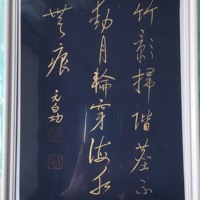 竹影掃階塵不
動月輪穿海水
無痕
元白功